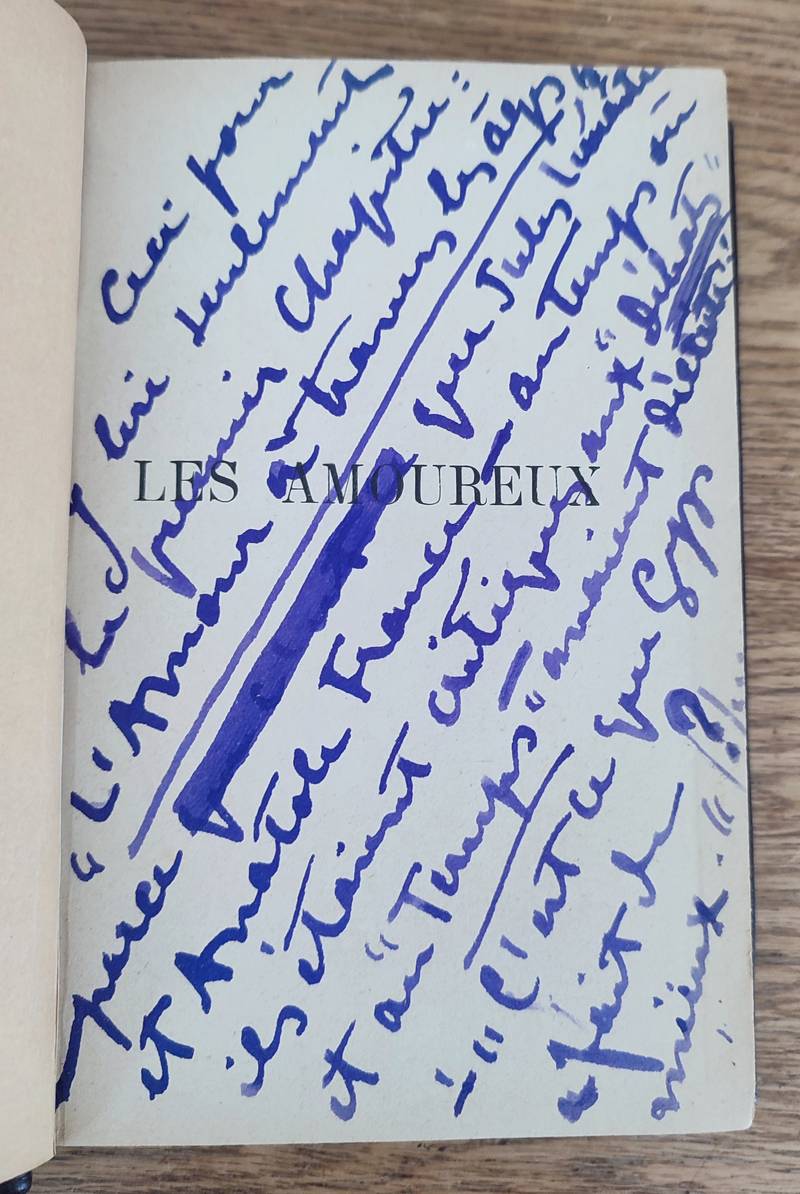 Ceci pour
lire seulement
le premier Chapitre :
"L'Amour à travers les âges"
LES AMOUREUX
parce que Jules Lemaître
et Anatole France — au temps où
ils étaient critiques aux "Débats"
et au "Temps" — avaient
— "C'est ce que Gyp
a fait de
mieux."